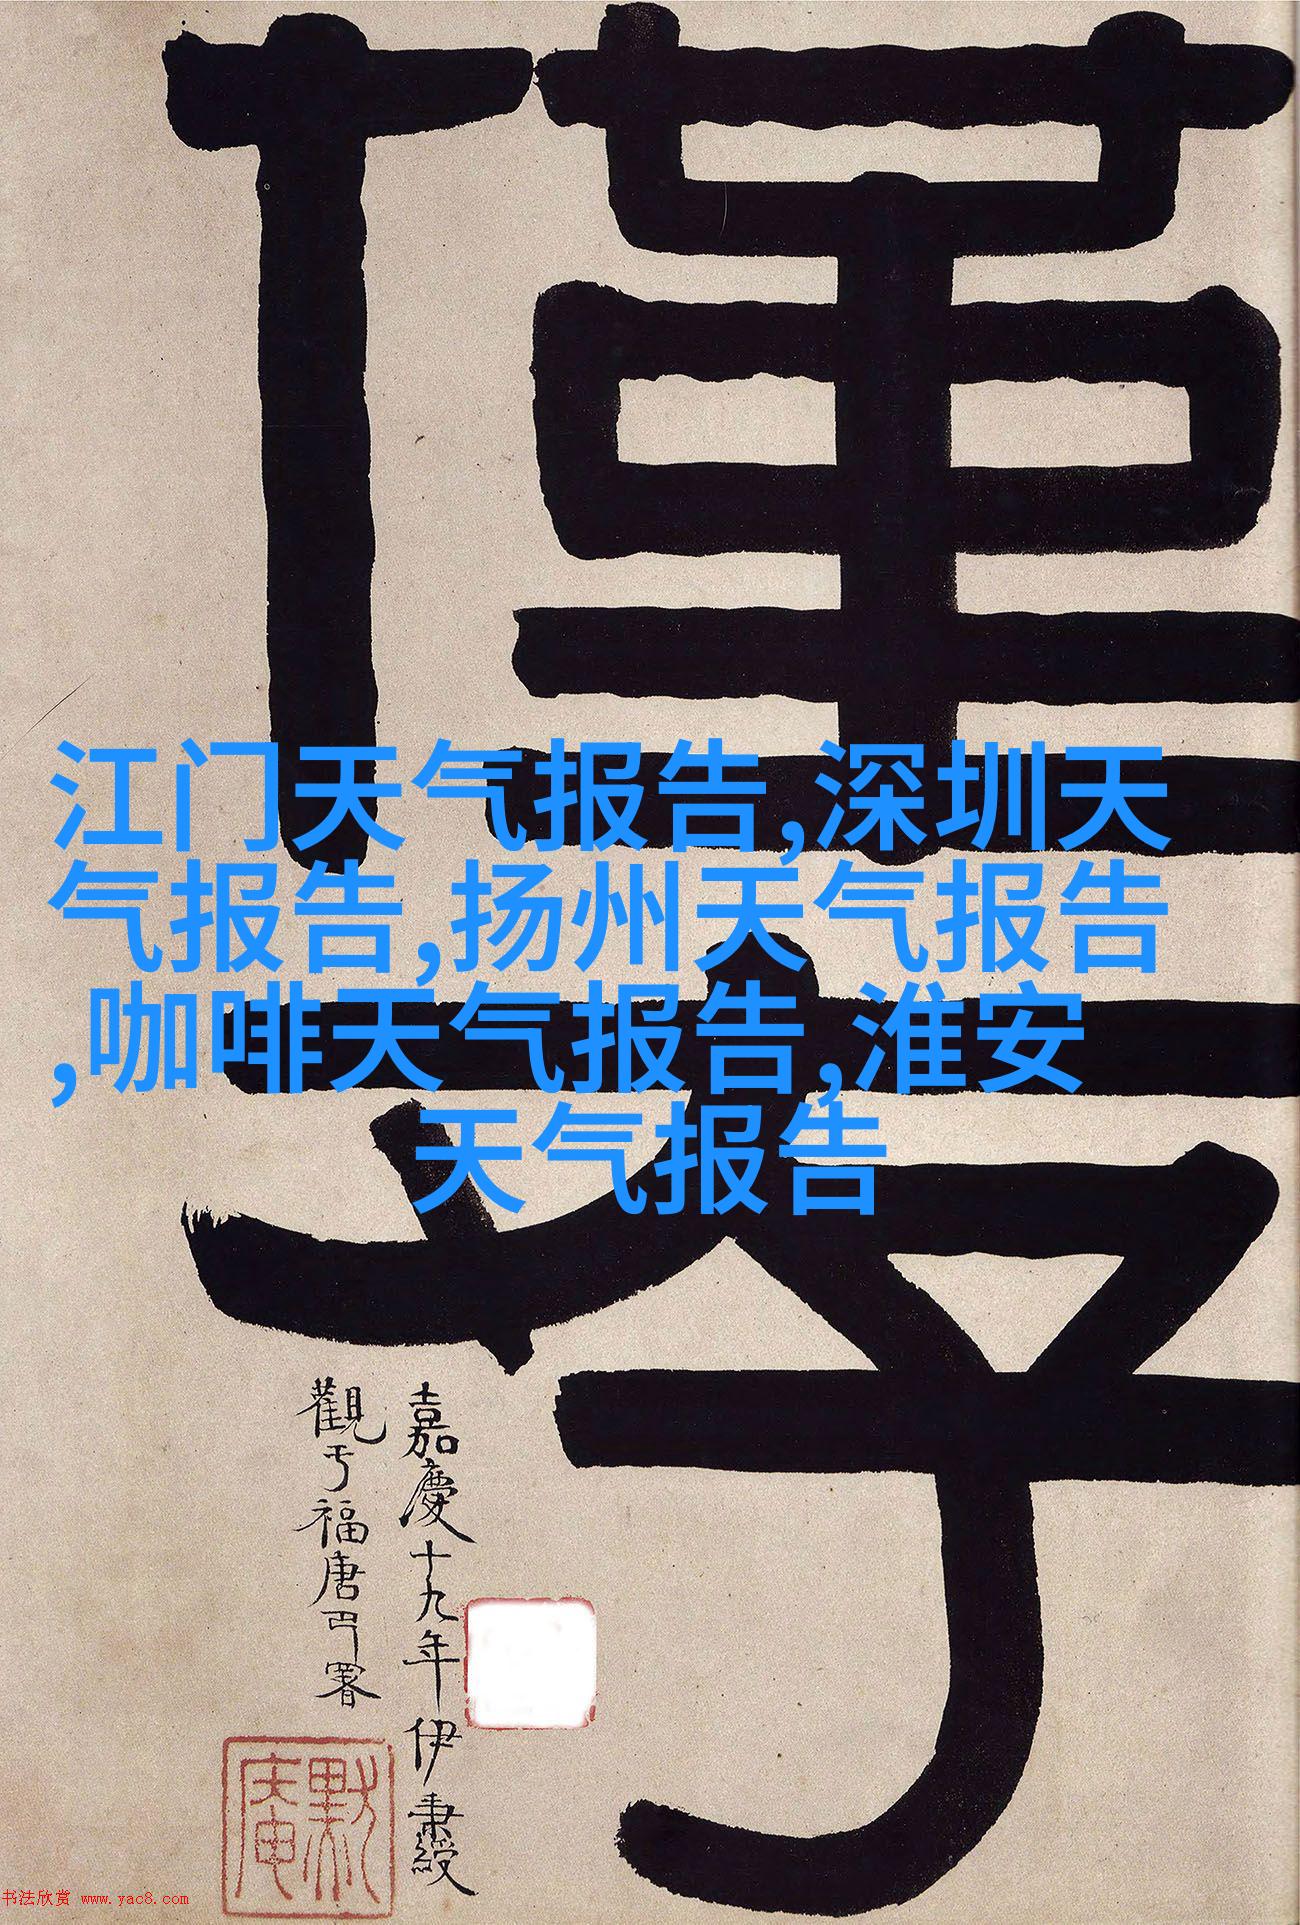 江门天气报告,深圳天
气报告,扬州天气报告
,咖啡天气报告,淮安
天气报告
嘉慶十九年伊秉綬
觀于福唐署
默庵
书法欣赏 www.yac8.com